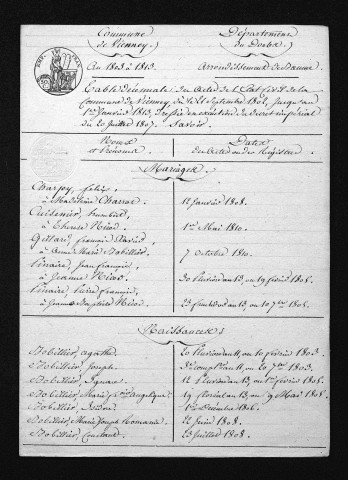 Commune
de Vienney.
Département
du Doubs.
An 1803 à 1813.
Arrondissement de Baume
Table Décennale des Actes de l'Etat Civil de la
Commune de Vienney, du 21 Septembre 1802, jusqu'au
1er Janvier 1813, dressée en exécution du décret impérial
du 20 Juillet 1807. Savoir.
Noms
et Prénoms
Dates
des Actes ou des Registres
Mariages.
Charpoy, felix,
à Madeleine Charroz. 12 Janvier 1808.
Cuisenier,
à Therese Nicod. 1er Mai 1810.
françois Xavier,
à Anne Marie Bobillier. 7 octobre 1810.
jean françois,
à Jeanne Nicod. 30 Pluviose an 13, ou 19 février 1805.
Pierre françois,
à Jeanne Baptiste Nicod. 23 frimaire an
Naissances.
Bobillier, agathe. 20 Pluviose an 11, ou 10 février 1803.
Bobillier, Joseph.
Bobillier, Ignace. 12 Pluviose an 13, ou 1er février 1805.
Bobillier, Marie angelique. 19 floréal an 13, ou 9 Mai 1805.
Bobillier, 1er Décembre 1806.
Bobillier, Marie Joseph Romanie. 22 Juin 1808.
Bobillier, Constant. 23 Juillet 1808.